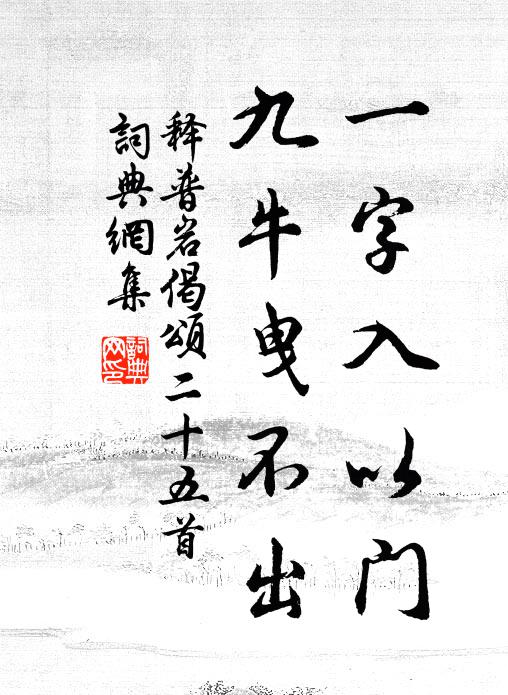 一字入以门
九牛曳不出
释普岩偈頌二十五首
詞典網集
詞典网印